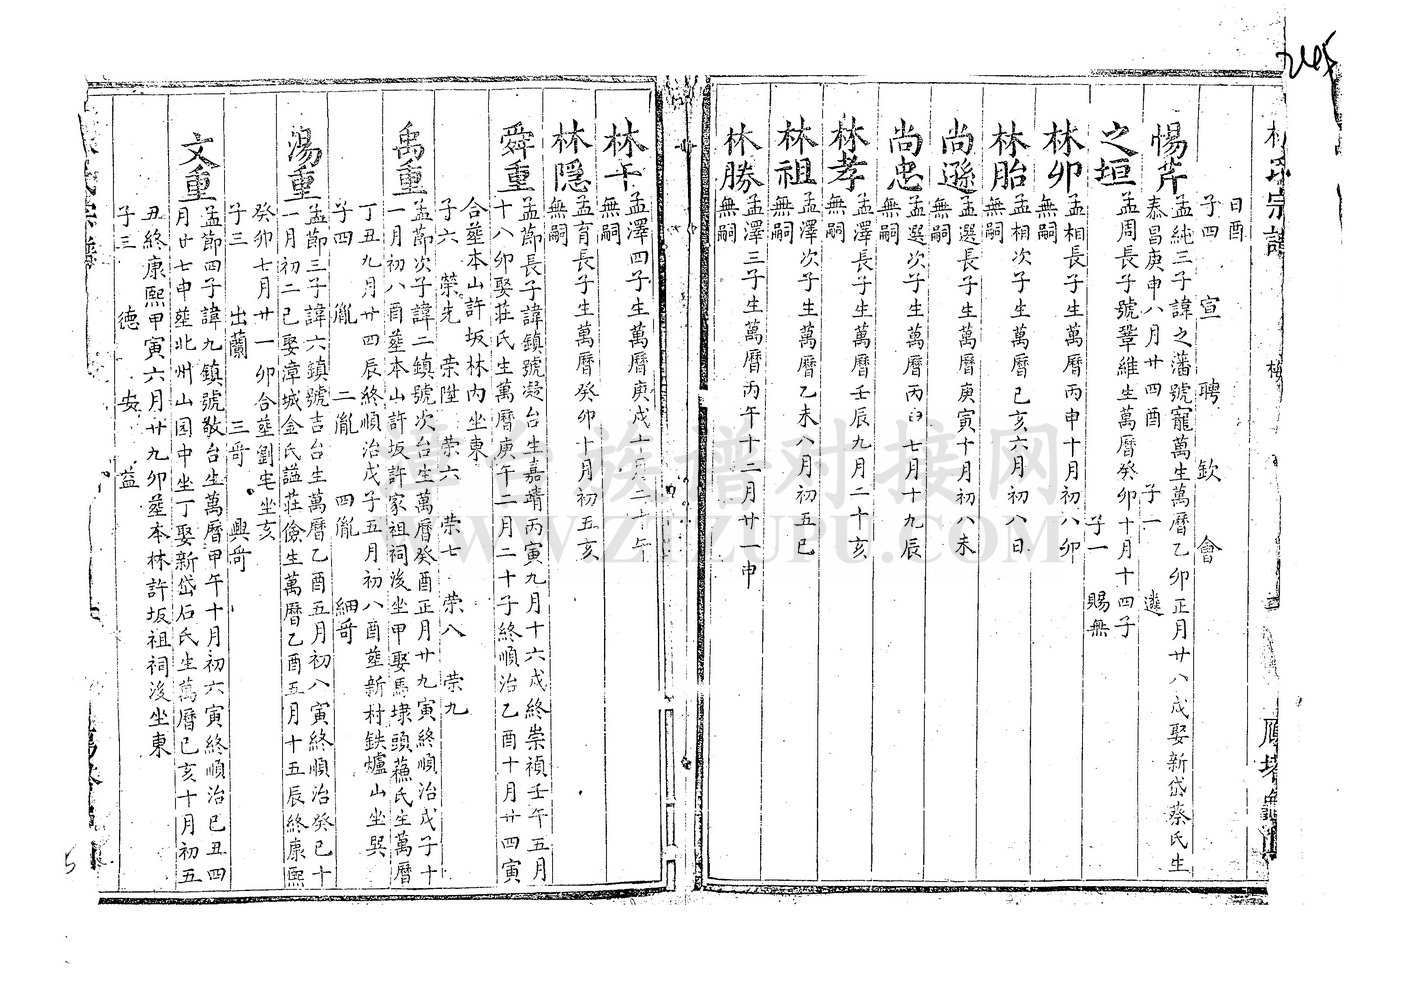 245
林氏宗譜
日酉
子四 宣 聘 欽 會
惕芹 孟純三子諱之潘號寵萬生萬曆乙卯正月廿八戌娶新岱蔡氏生
泰昌庚申八月廿四酉 子一 遴
之垣 孟周長子號鞏維生萬曆癸卯十月十四子
子一 賜無
林卯 孟相長子生萬曆丙申十月初八卯
無嗣
林胎 孟相次子生萬曆己亥六月初八日
無嗣
尚遜 孟選長子生萬曆庚寅十月初八未
無嗣
尚忠 孟選次子生萬曆丙 七月十九辰
無嗣
林孝 孟澤長子生萬曆壬辰九月二十亥
無嗣
林祖 孟澤次子生萬曆乙未八月初五巳
無嗣
林勝 孟澤三子生萬曆丙午十二月廿一申
無嗣
林午 孟澤四子生萬曆庚戌十一月二十午
無嗣
林隱 孟育長子生萬曆癸卯十月初五亥
無嗣
舜重 孟節長子諱鎮號凝台生嘉靖丙寅九月十六戌終崇禎壬午五月
十八卯娶莊氏生萬曆庚午二月二十子終順治乙酉十月廿四寅
合塟本山許坂林內坐東
子六 榮先 荣陞 荣六 荣七 荣八 荣九
禹重 孟節次子諱二鎮號次台生萬曆癸酉正月廿九寅終順治戊子十
一月初八酉塟本山許坂許家祖祠後坐甲娶馬埭頭蘓氏生萬曆
丁丑九月廿四辰終順治戊子五月初八酉塟新村鉄爐山坐巽
子四 胤 二胤 四胤 細哥
湯重 孟節三子諱六鎮號吉台生萬曆乙酉五月初八寅終順治癸巳十
一月初二巳娶漳城金氏謚莊儉生萬曆乙酉五月十五辰終康熙
癸卯七月廿一卯合塟劉宅坐亥
子三 出蘭 三哥 興哥
文重 孟節四子諱九鎮號敬台生萬曆甲午十月初六寅終順治己丑四
月廿七申塟北州山园中坐丁娶新岱石氏生萬曆己亥十月初五
丑終康熙甲寅六月廿九卯塟本林許坂祖祠後坐東
子三 德 安 益
漳台族谱对接网
WWW.ZTZUPU.COM